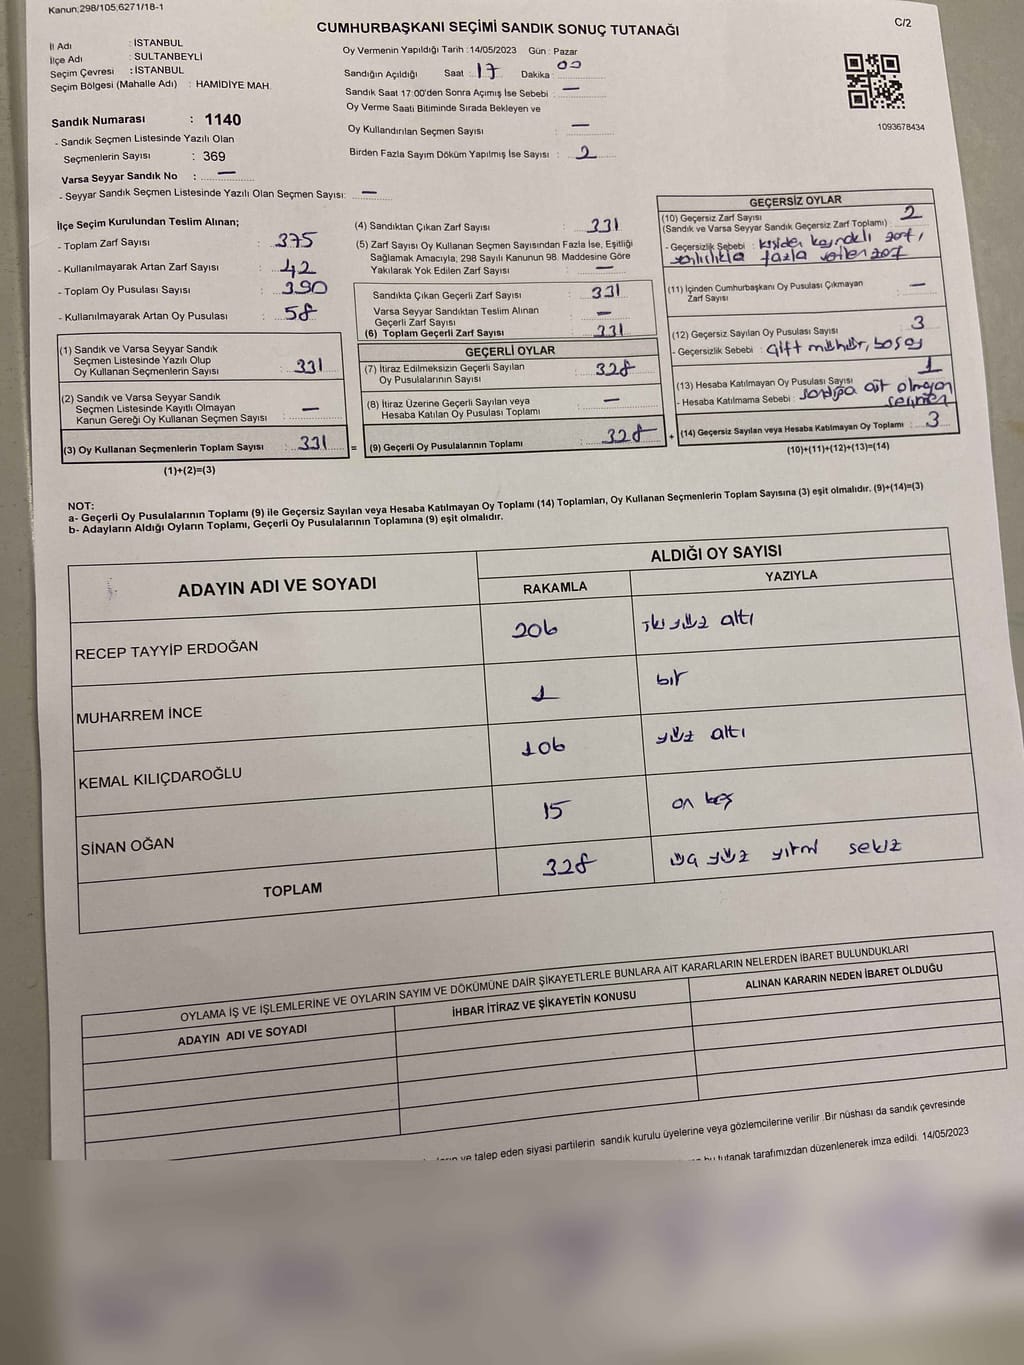 Kanun;298/105,6271/18-1
C/2
CUMHURBAŞKANI SEÇİMİ SANDIK SONUÇ TUTANAĞI
İl Adı : İSTANBUL
İlçe Adı : SULTANBEYLİ
Seçim Çevresi : İSTANBUL
Seçim Bölgesi (Mahalle Adı) : HAMİDİYE MAH.
Oy Vermenin Yapıldığı Tarih :14/05/2023 Gün : Pazar
Sandığın Açıldığı Saat : 17 Dakika : 00
Sandık Saat 17:00'den Sonra Açımış İse Sebebi : —
Oy Verme Saati Bitiminde Sırada Bekleyen ve
Oy Kullandırılan Seçmen Sayısı : —
Birden Fazla Sayım Döküm Yapılmış İse Sayısı : 2
1093678434
Sandık Numarası : 1140
- Sandık Seçmen Listesinde Yazılı Olan
Seçmenlerin Sayısı : 369
Varsa Seyyar Sandık No : —
- Seyyar Sandık Seçmen Listesinde Yazılı Olan Seçmen Sayısı: —
İlçe Seçim Kurulundan Teslim Alınan;
- Toplam Zarf Sayısı : 375
- Kullanılmayarak Artan Zarf Sayısı : 42
- Toplam Oy Pusulası Sayısı : 390
- Kullanılmayarak Artan Oy Pusulası : 58
(1) Sandık ve Varsa Seyyar Sandık
Seçmen Listesinde Yazılı Olup
Oy Kullanan Seçmenlerin Sayısı : 331
(2) Sandık ve Varsa Seyyar Sandık
Seçmen Listesinde Kayıtlı Olmayan
Kanun Gereği Oy Kullanan Seçmen Sayısı : —
(3) Oy Kullanan Seçmenlerin Toplam Sayısı : 331
(1)+(2)=(3)
(4) Sandıktan Çıkan Zarf Sayısı : 331
(5) Zarf Sayısı Oy Kullanan Seçmen Sayısından Fazla İse, Eşitliği
Sağlamak Amacıyla; 298 Sayılı Kanunun 98. Maddesine Göre
Yakılarak Yok Edilen Zarf Sayısı : —
Sandıkta Çıkan Geçerli Zarf Sayısı : 331
Varsa Seyyar Sandıktan Teslim Alınan
Geçerli Zarf Sayısı : —
(6) Toplam Geçerli Zarf Sayısı : 331
GEÇERLİ OYLAR
(7) İtiraz Edilmeksizin Geçerli Sayılan
Oy Pusulalarının Sayısı : 328
(8) İtiraz Üzerine Geçerli Sayılan veya
Hesaba Katılan Oy Pusulası Toplamı : —
= (9) Geçerli Oy Pusulalarının Toplamı : 328
GEÇERSİZ OYLAR
(10) Geçersiz Zarf Sayısı
(Sandık ve Varsa Seyyar Sandık Geçersiz Zarf Toplamı) : 2
- Geçersizlik Sebebi : kişiden kaynaklı zarf,
yanlışlıkla fazla verilen zarf
(11) İçinden Cumhurbaşkanı Oy Pusulası Çıkmayan
Zarf Sayısı : —
(12) Geçersiz Sayılan Oy Pusulası Sayısı : 3
- Geçersizlik Sebebi : çift mühür, boş oy
(13) Hesaba Katılmayan Oy Pusulası Sayısı : 1
- Hesaba Katılmama Sebebi : sandığa ait olmayan
seçmen
+ (14) Geçersiz Sayılan veya Hesaba Katılmayan Oy Toplamı : 3
(10)+(11)+(12)+(13)=(14)
NOT:
a- Geçerli Oy Pusulalarının Toplamı (9) ile Geçersiz Sayılan veya Hesaba Katılmayan Oy Toplamı (14) Toplamları, Oy Kullanan Seçmenlerin Toplam Sayısına (3) eşit olmalıdır. (9)+(14)=(3)
b- Adayların Aldığı Oyların Toplamı, Geçerli Oy Pusulalarının Toplamına (9) eşit olmalıdır.
ADAYIN ADI VE SOYADI
ALDIĞI OY SAYISI
RAKAMLA YAZIYLA
RECEP TAYYİP ERDOĞAN 206 iki yüz altı
MUHARREM İNCE 1 bir
KEMAL KILIÇDAROĞLU 106 yüz altı
SİNAN OĞAN 15 on beş
TOPLAM 328 üç yüz yirmi sekiz
OYLAMA İŞ VE İŞLEMLERİNE VE OYLARIN SAYIM VE DÖKÜMÜNE DAİR ŞİKAYETLERLE BUNLARA AİT KARARLARIN NELERDEN İBARET BULUNDUKLARI
ADAYIN ADI VE SOYADI İHBAR İTİRAZ VE ŞİKAYETİN KONUSU ALINAN KARARIN NEDEN İBARET OLDUĞU
ve talep eden siyasi partilerin sandık kurulu üyelerine veya gözlemcilerine verilir .Bir nüshası da sandık çevresinde
bu tutanak tarafımızdan düzenlenerek imza edildi. 14/05/2023